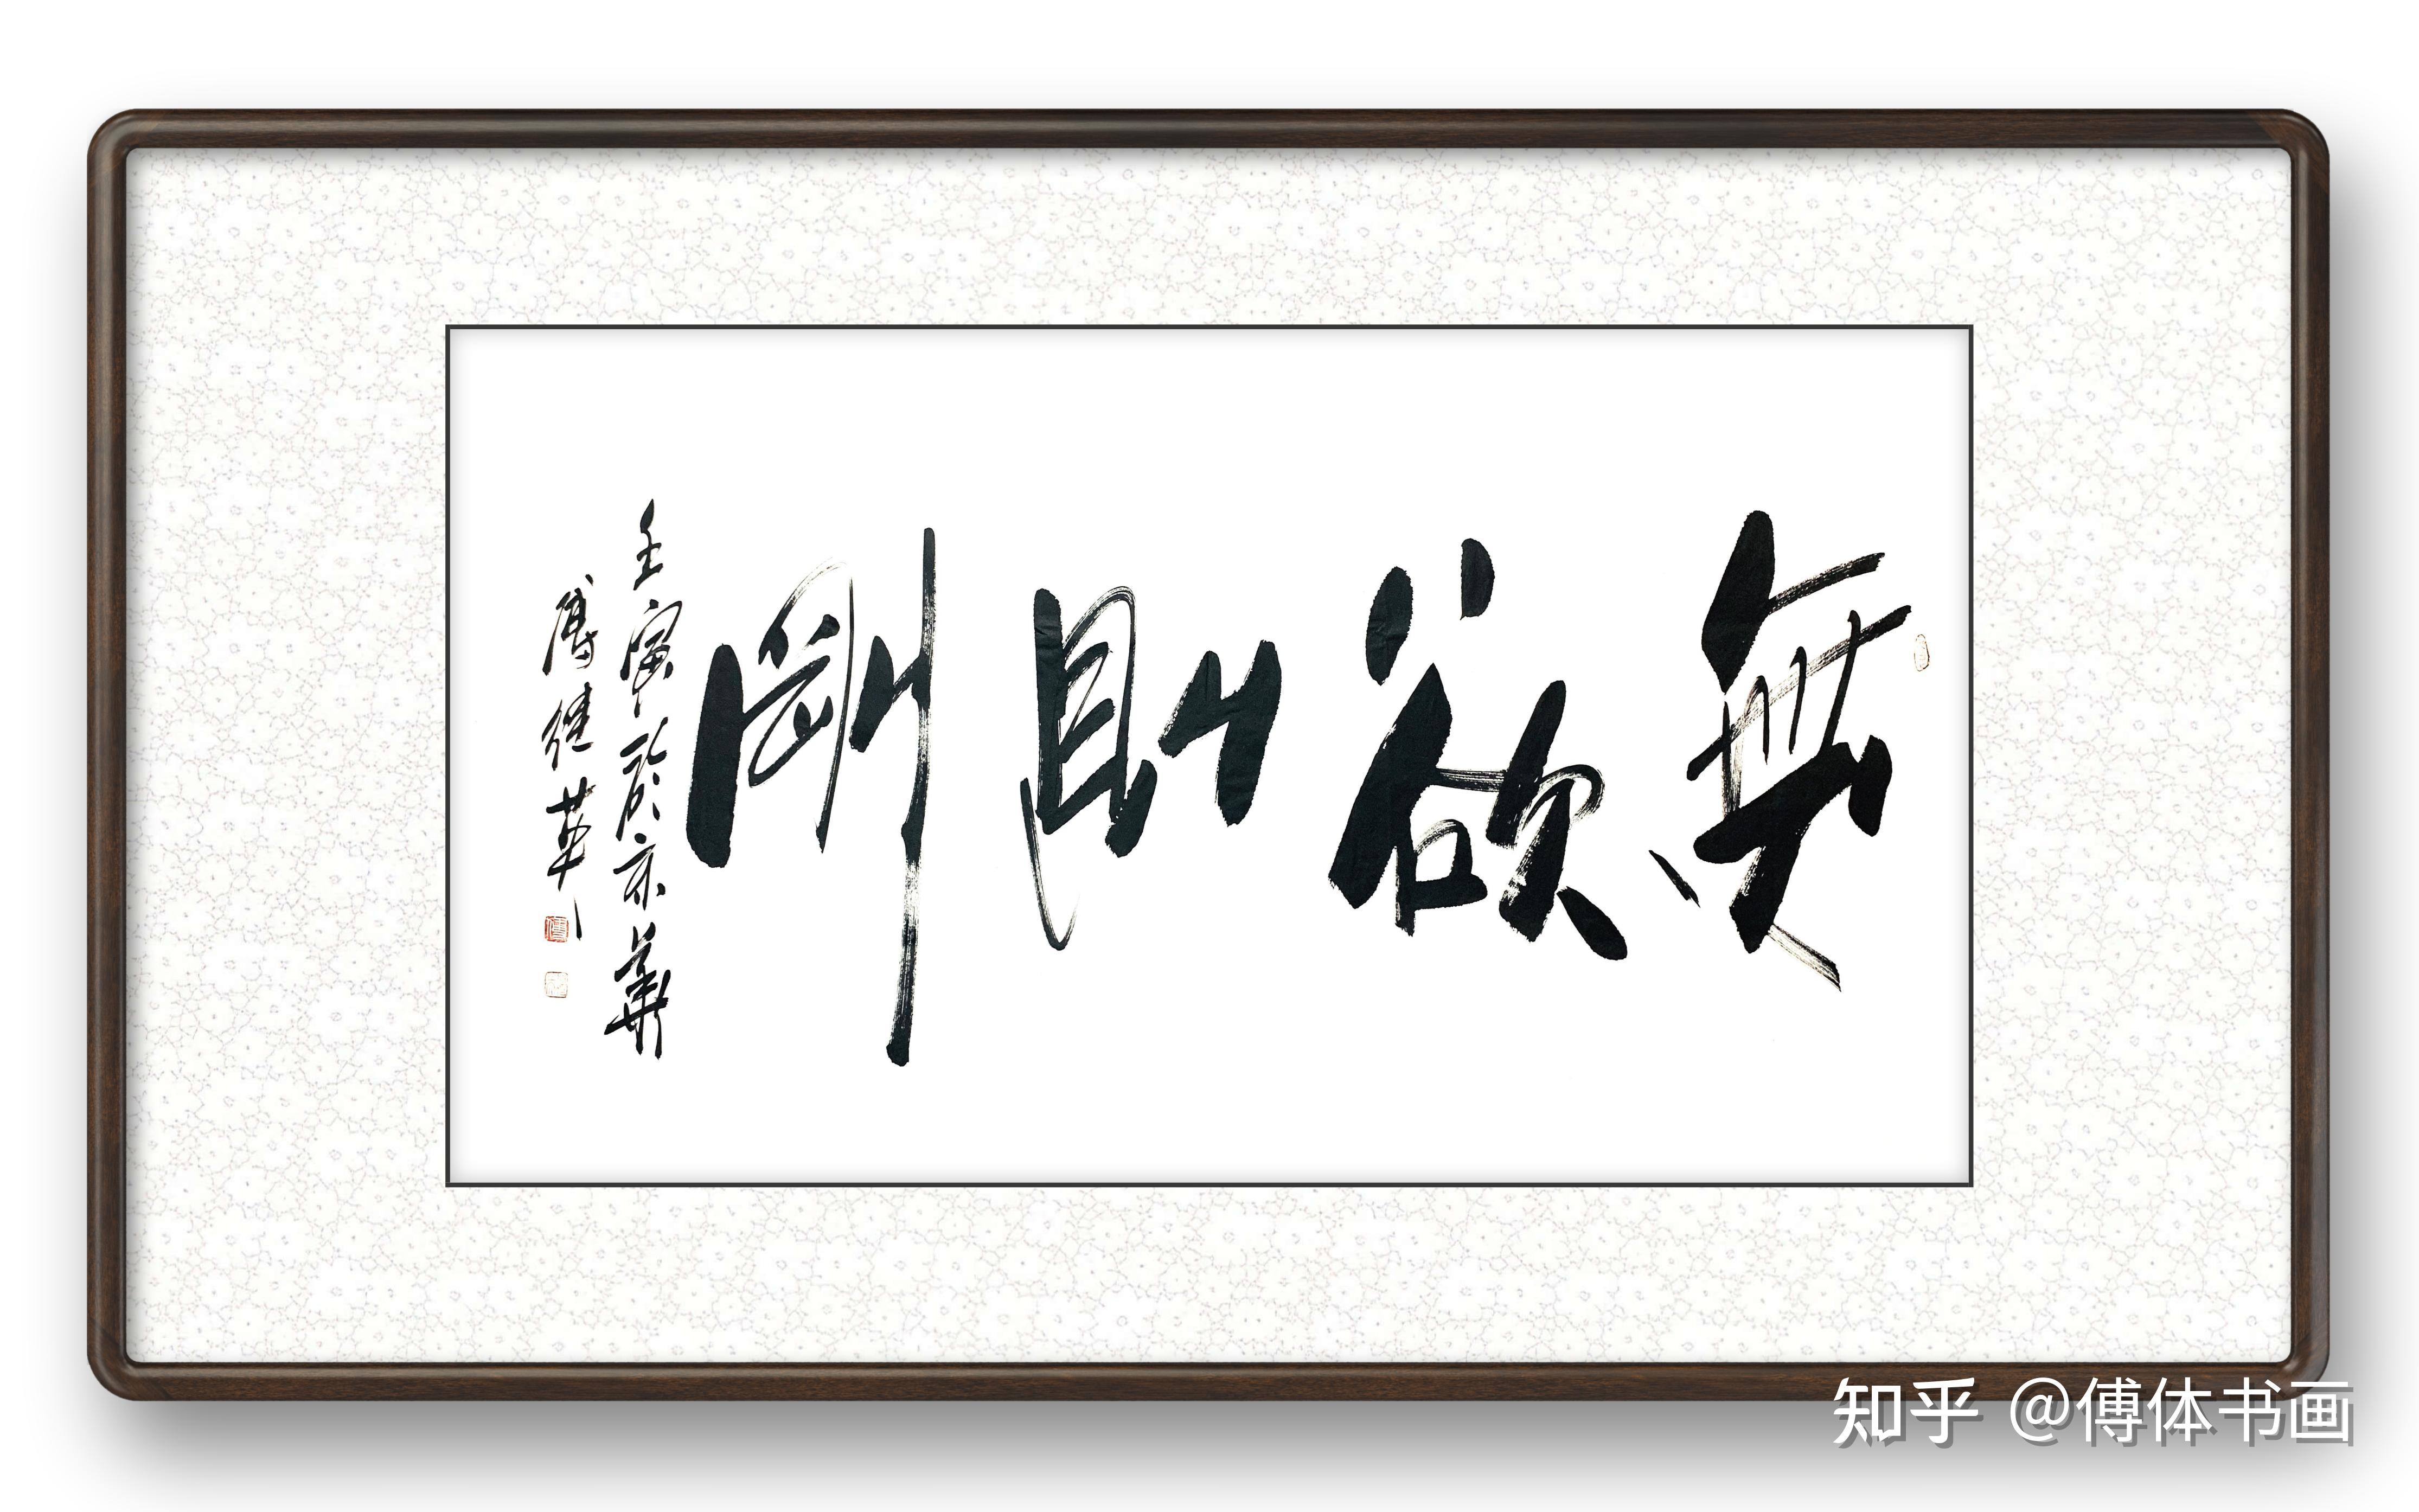 無欲則剛
壬寅年於京華
傅继英
知乎 @傅体书画